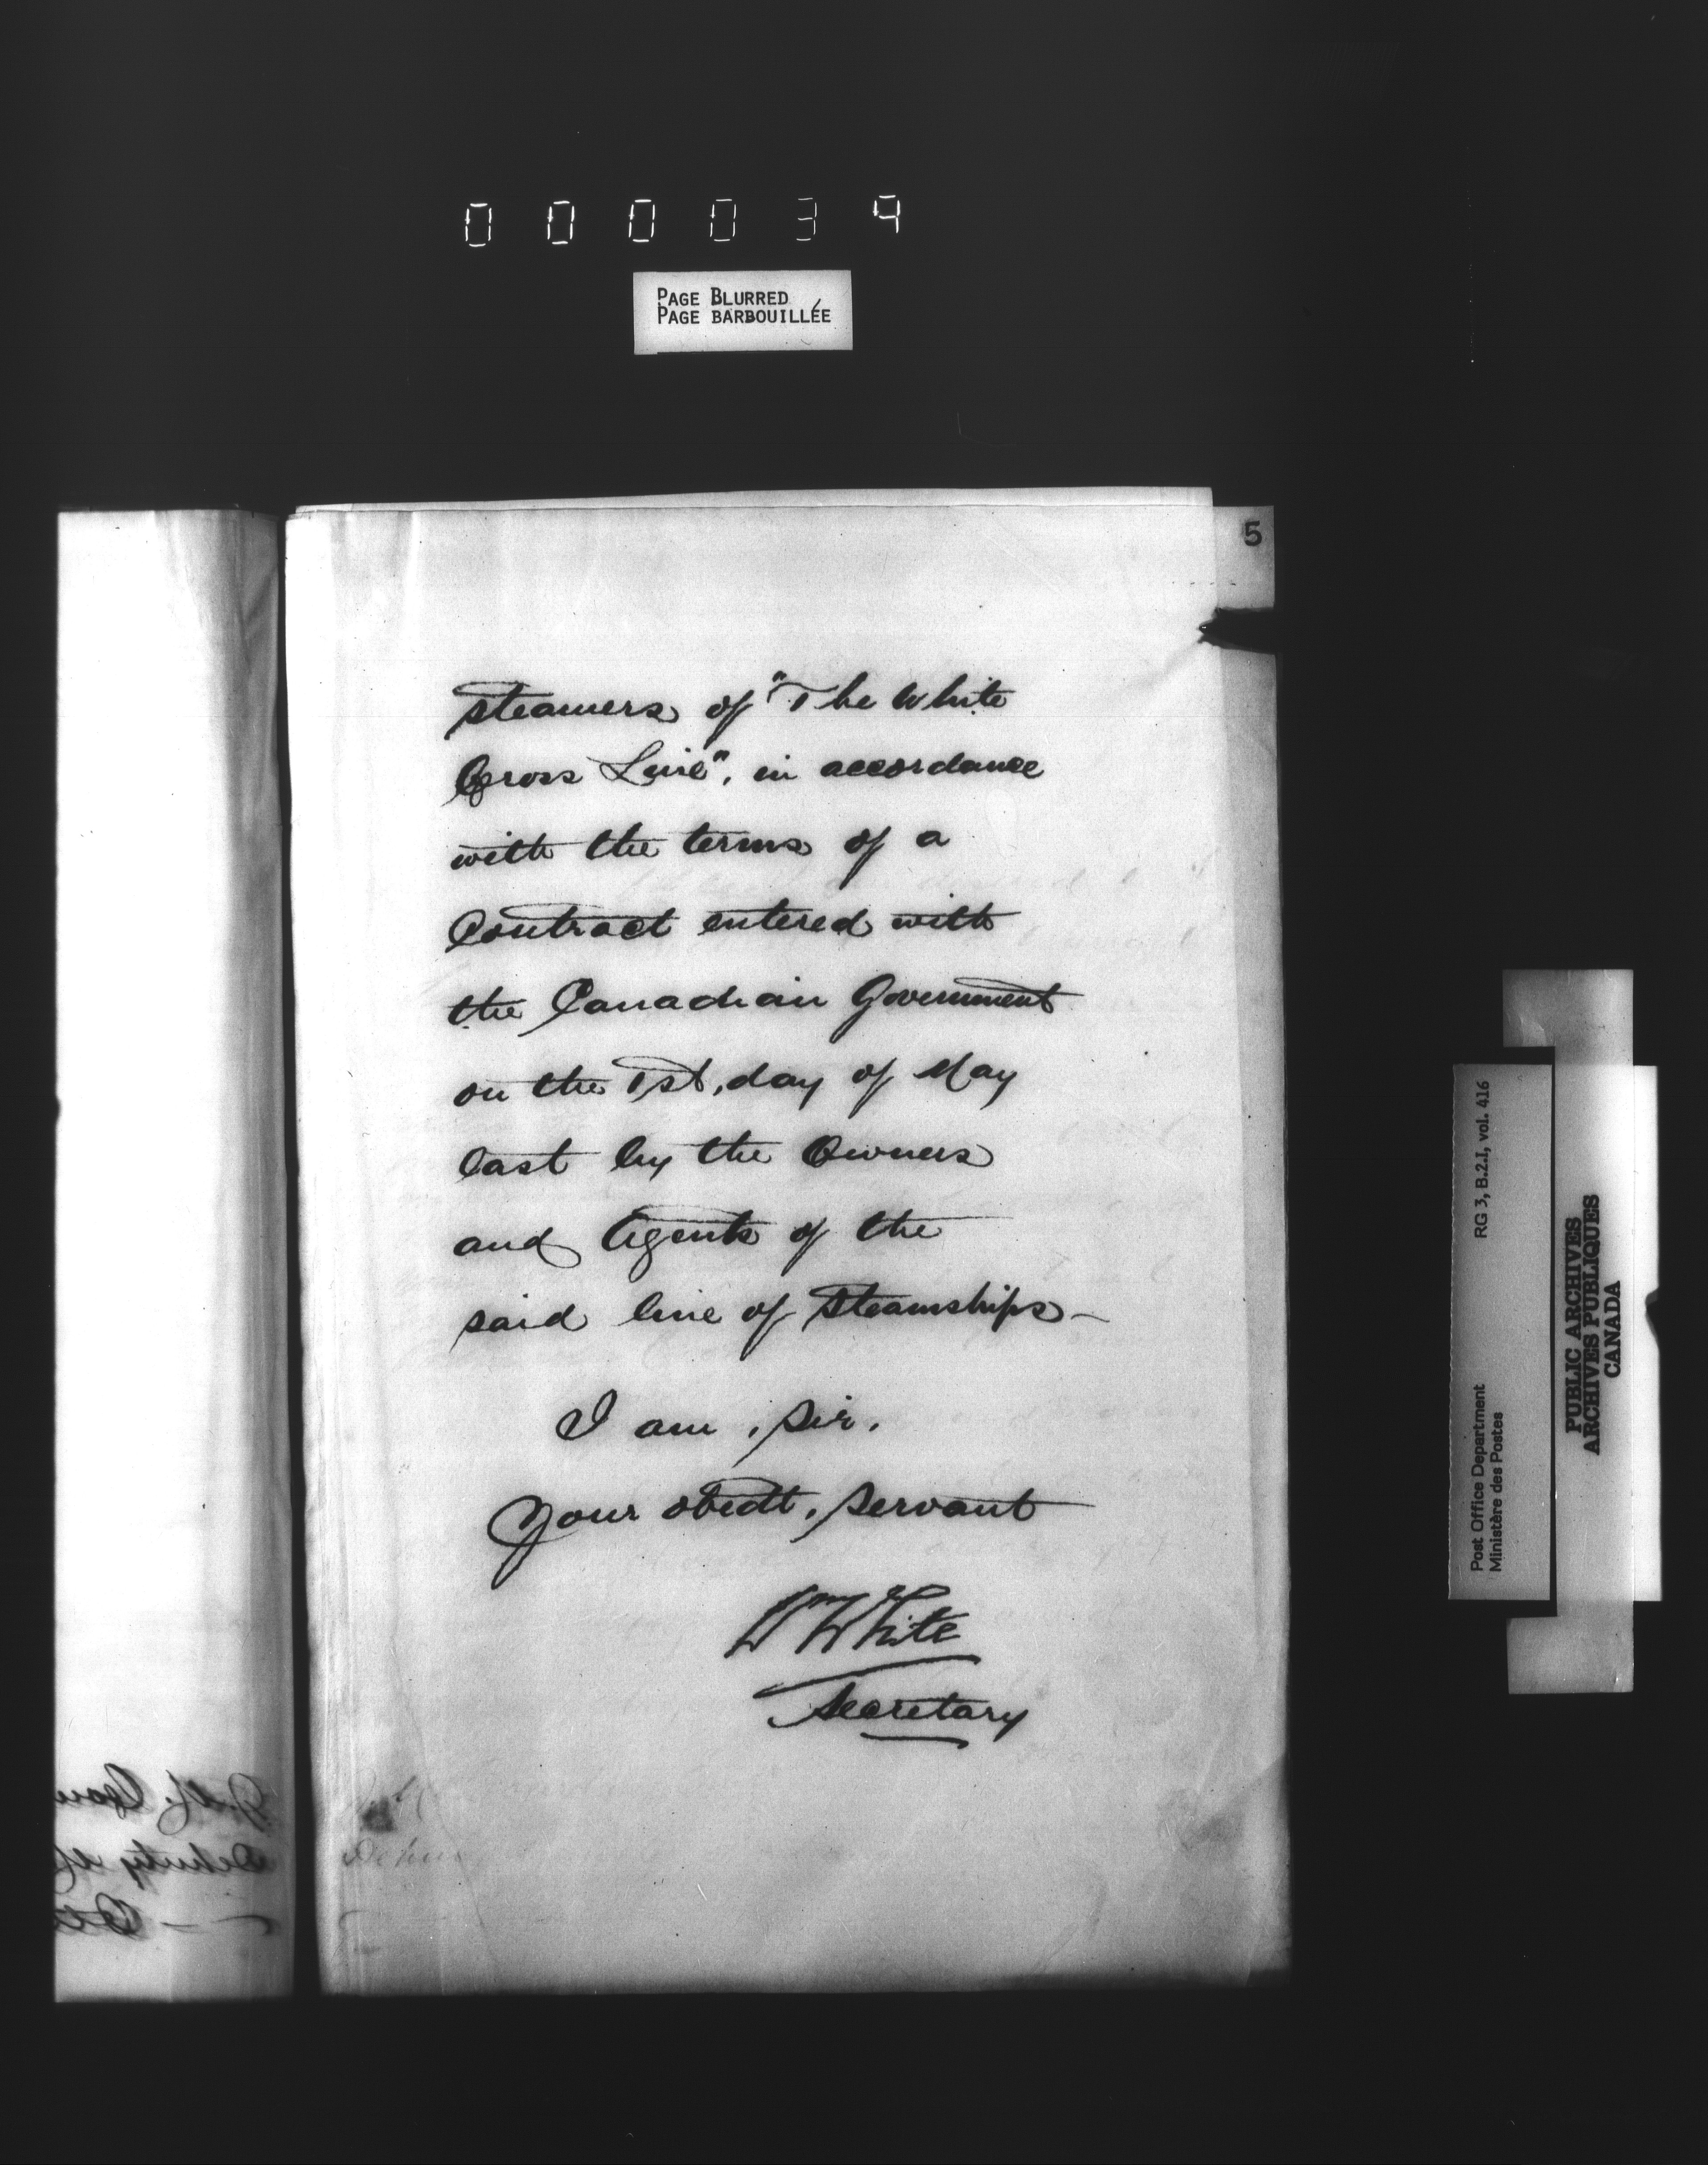 000034
PAGE BLURRED
PAGE BARBOUILLÉE
5
steamers of "The White
Cross Line", in accordance
with the terms of a
Contract entered with
the Canadian Government
on the 1st, day of May
last by the Owners
and Agents of the
said line of Steamships—
I am, Sir,
Your obedt, servant
Wm White
Secretary
Deputy
Post Office Department
Ministère des Postes
RG 3, B.2.I, vol. 416
PUBLIC ARCHIVES
ARCHIVES PUBLIQUES
CANADA